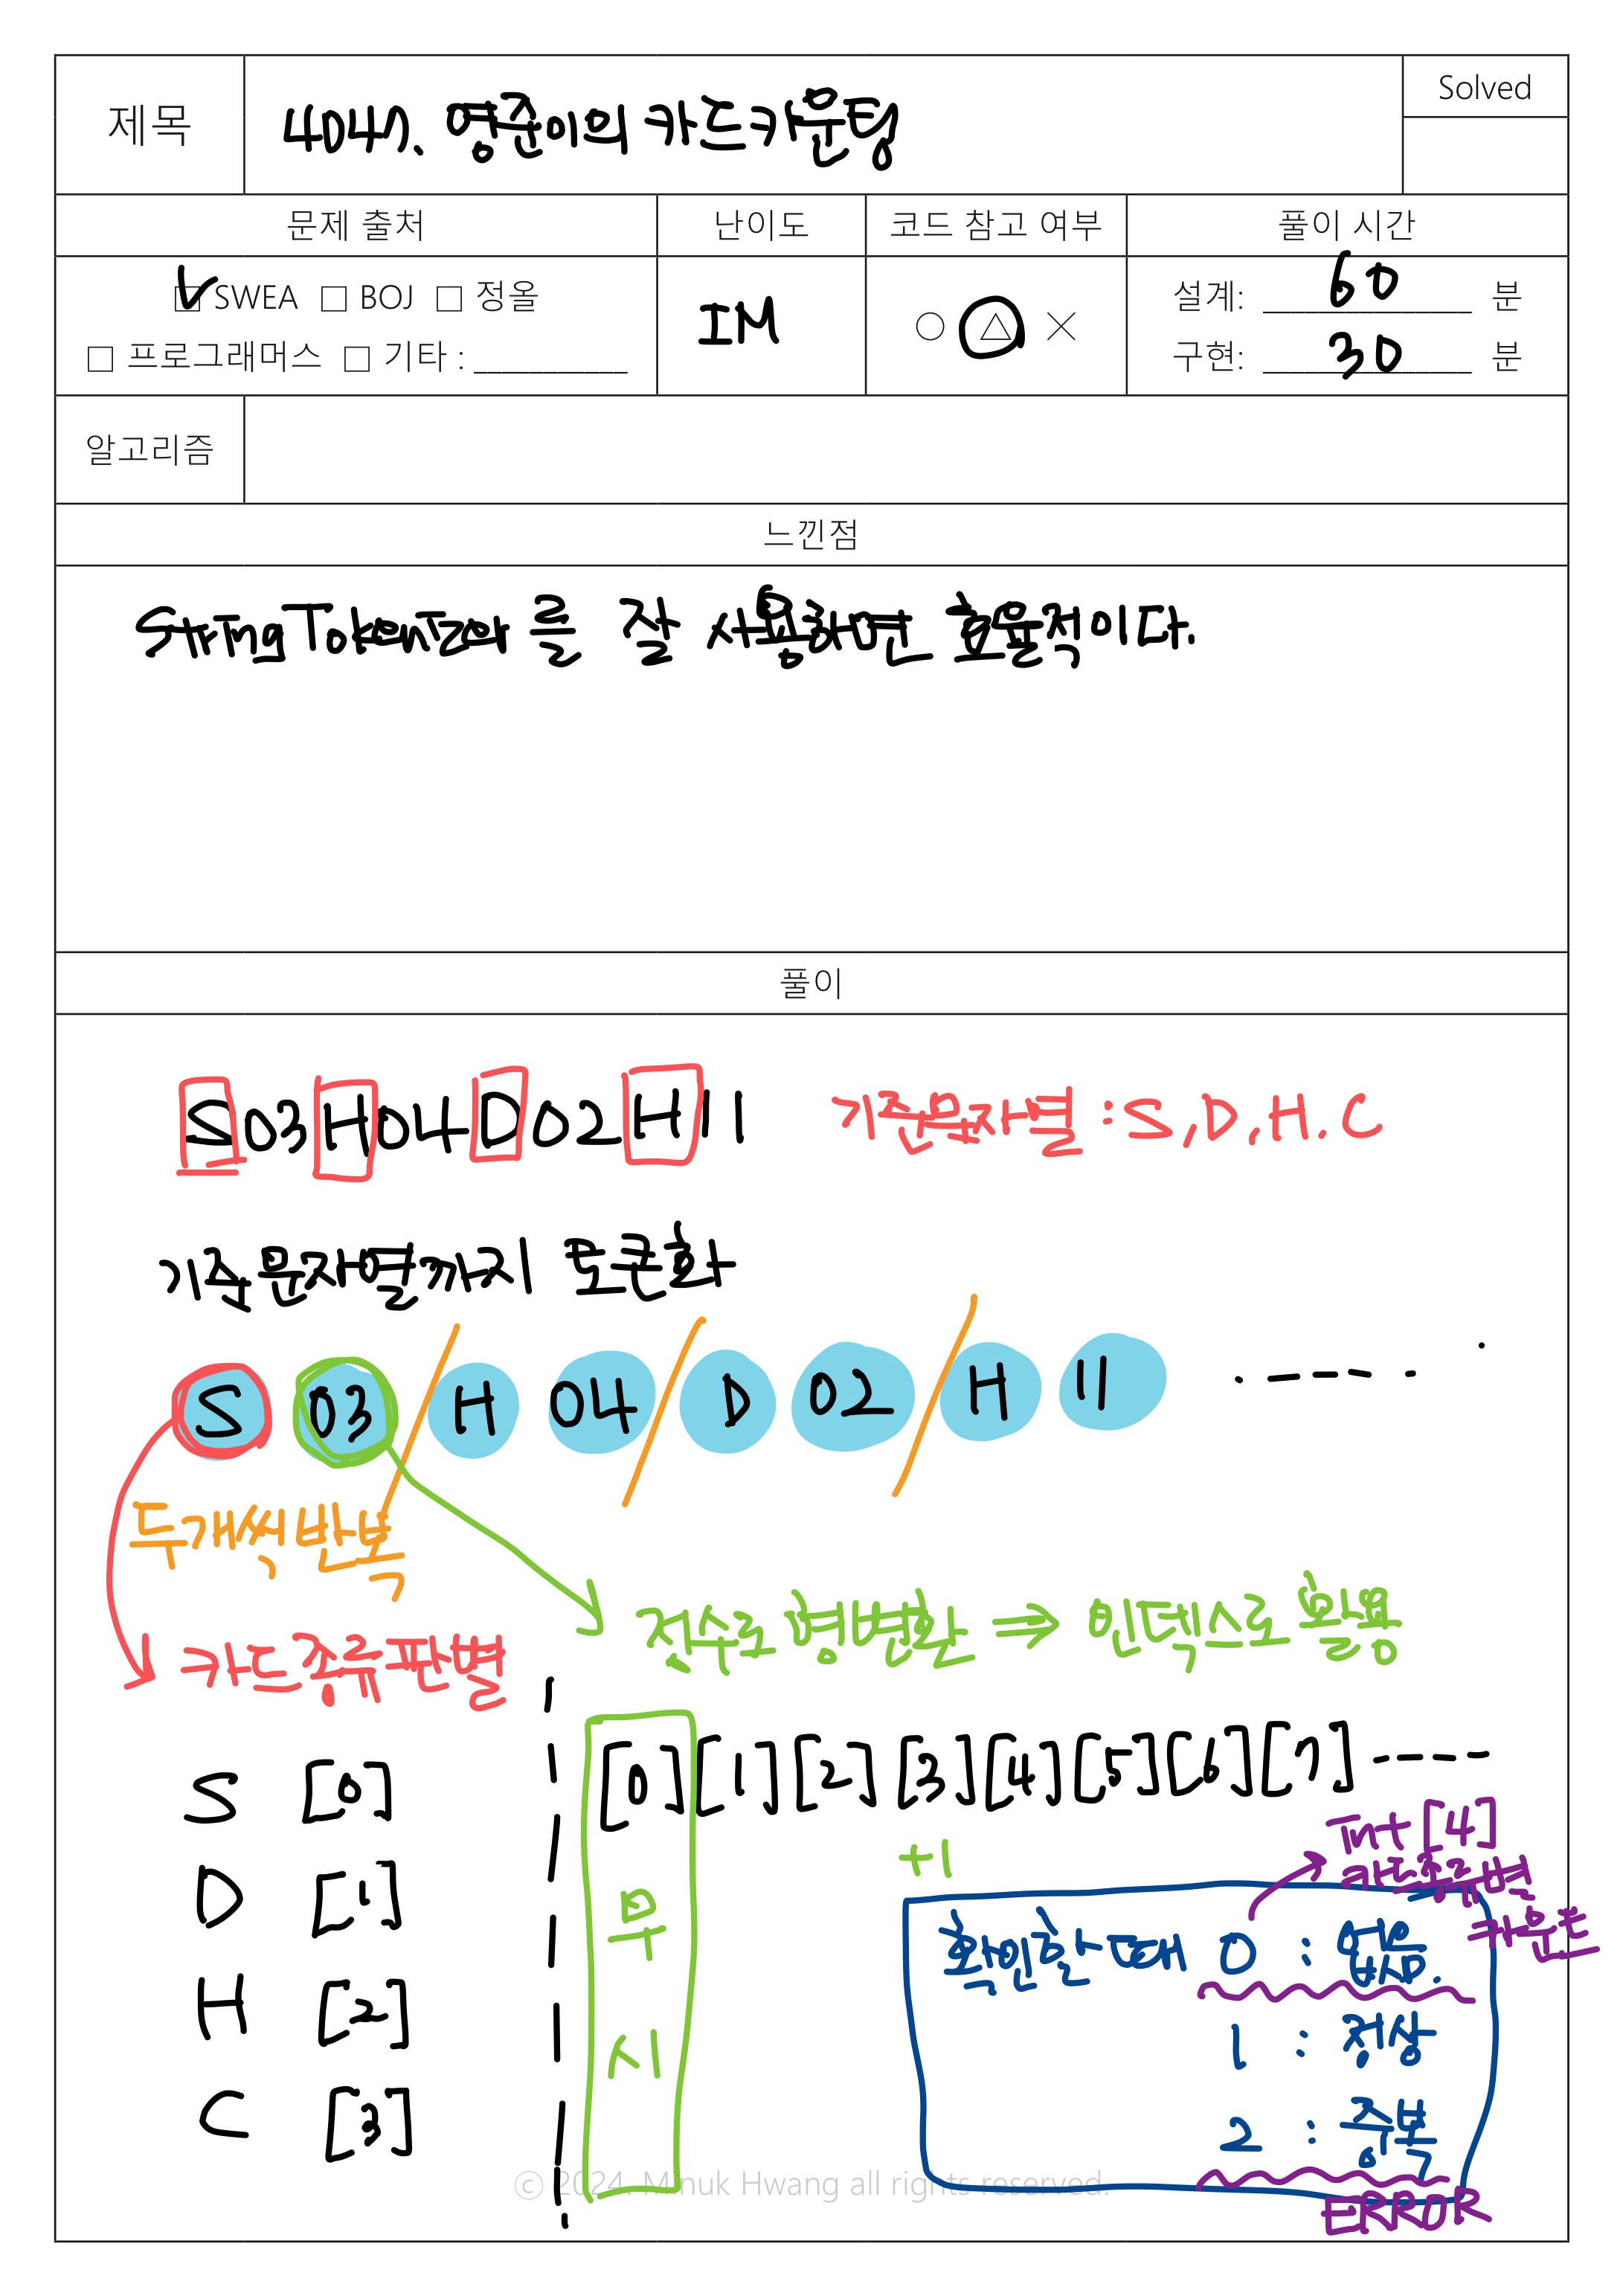 제목
4047. 영준이의 카드카운팅
Solved
문제 출처
난이도
코드 참고 여부
풀이 시간
☑ SWEA □ BOJ □ 정올
□ 프로그래머스 □ 기타 : __________
IM
○ △ ×
설계: 60 분
구현: 30 분
알고리즘
느낀점
StringTokenizer를 잘 사용하면 효율적이다.
풀이
S03H04D02H11
기준문자별 : S, D, H, C
기준문자열까지 토큰화
S 03 / H 04 / D 02 / H 11 ·----·
두개씩 반복
정수로 형변환 ⇒ 인덱스로 활용
카드 종류 판별
S [0]
D [1]
H [2]
C [3]
[0] [1] [2] [3] [4] [5] [6] [7] ----
무시
+1
int [4]
카드종류별
카운트
확인할 때 0 : 없음.
1 : 정상
2 : 중복
ERROR
© 2024. Minuk Hwang all rights reserved.